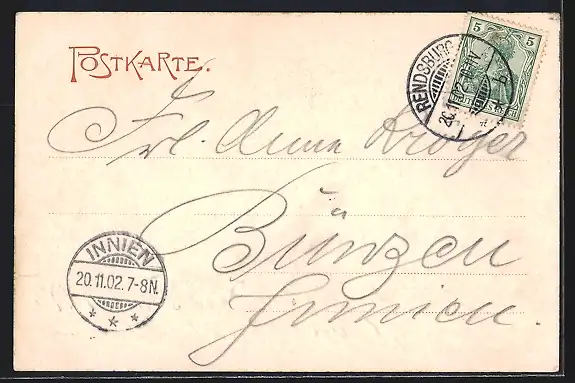 POSTKARTE.
5 5
RENDSBURG
20.11.02.
Frl. Anna Kröger
Bünzen
Innien.
INNIEN
20.11.02.7-8N.